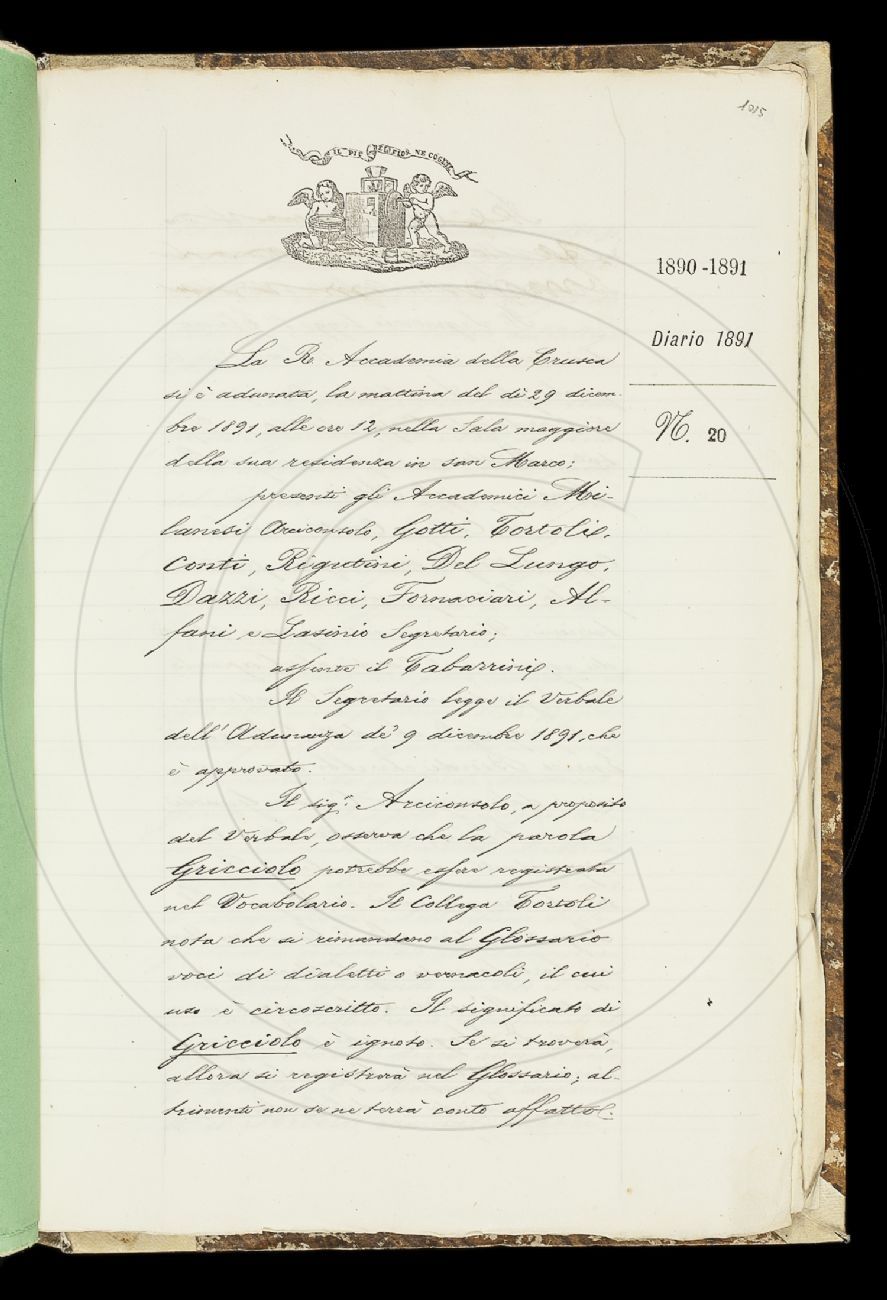 1015
IL PIÙ BEL FIOR NE COGLIE
1890-1891
Diario 1891
N. 20
La R. Accademia della Crusca
si è adunata, la mattina del dì 29 dicem-
bre 1891, alle ore 12, nella Sala maggiore
della sua residenza in san Marco;
presenti gli Accademici Mi-
lanesi Arciconsolo, Gotti, Tortoli,
Conti, Rigutini, Del Lungo,
Dazzi, Ricci, Fornaciari, Al-
fani e Lasinio Segretario;
assente il Tabarrini.
Il Segretario legge il Verbale
dell'Adunanza de' 9 dicembre 1891, che
è approvato.
Il sig.r Arciconsolo, a proposito
del Verbale, osserva che la parola
Gricciolo potrebbe essere registrata
nel Vocabolario. Il Collega Tortoli
nota che si rimandano al Glossario
voci di dialetti o vernacoli, il cui
uso è circoscritto. Il significato di
Gricciolo è ignoto. Se si troverà,
allora si registrerà nel Glossario; al-
trimenti non se ne terrà conto affatto.